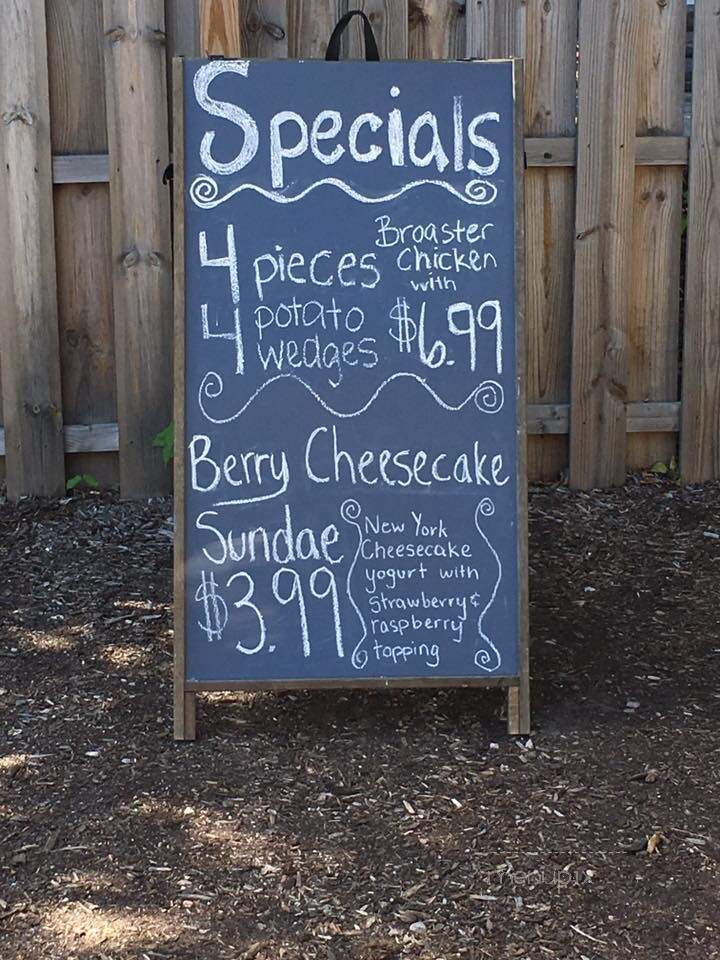 Specials
4 pieces Broaster Chicken with
4 potato wedges $6.99
Berry Cheesecake
Sundae
$3.99
New York
Cheesecake
yogurt with
strawberry &
raspberry
topping
menupix